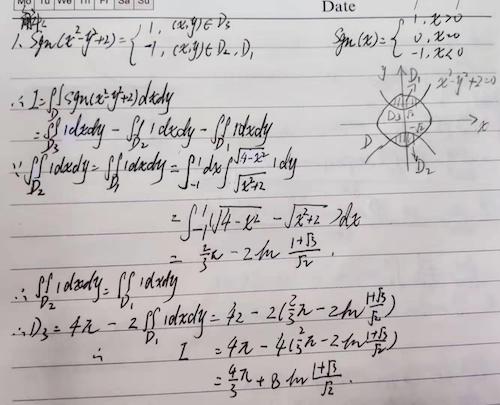 Mo Tu We Th Fr Sa Su
Date
解:
1. Sgn(x²-y²+2)={ 1, (x,y)∈D₃
-1, (x,y)∈D₂,D₁
Sgn(x)={ 1, x>0
0, x=0
-1, x<0
y D₁ x²-y²+2=0
D₃ √2
-√2 x
D D₂
∴ I=∬_D sgn(x²-y²+2)dxdy
=∬_D₃ 1dxdy - ∬_D₂ 1dxdy - ∬_D₁ 1dxdy
∵ ∬_D₂ 1dxdy=∬_D₁ 1dxdy=∫₋₁¹dx∫_√(x²+2)^√(4-x²) 1dy
=∫₋₁¹(√(4-x²) - √(x²+2))dx
= 2/3π - 2ln (1+√3)/√2.
∴ ∬_D₂ 1dxdy=∬_D₁ 1dxdy
∴ D₃=4π - 2∬_D₁ 1dxdy=42 - 2(2/3π - 2ln (1+√3)/√2)
∴ I =4π - 4(2/3π - 2ln (1+√3)/√2)
=4/3π + 8ln (1+√3)/√2.